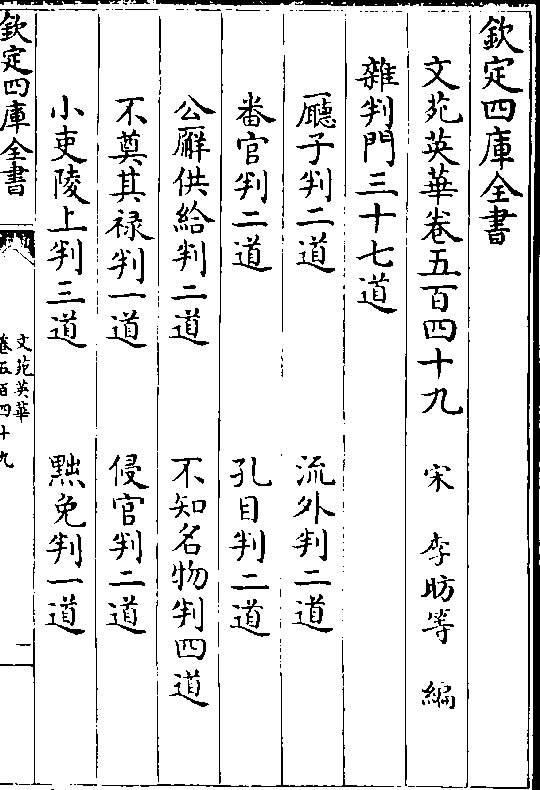 欽定四庫全書
文苑英華卷五百四十九　宋　李昉等　編
雜判門三十七道
廳子判二道　流外判二道
番官判二道　孔目判二道
公廨供給判二道　不知名物判四道
不奠其祿判一道　侵官判二道
小吏陵上判三道　黜免判一道
欽定四庫全書
文苑英華
卷五百四十九
一